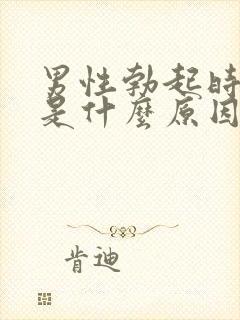 男性勃起時
是什麼原因
肯迪